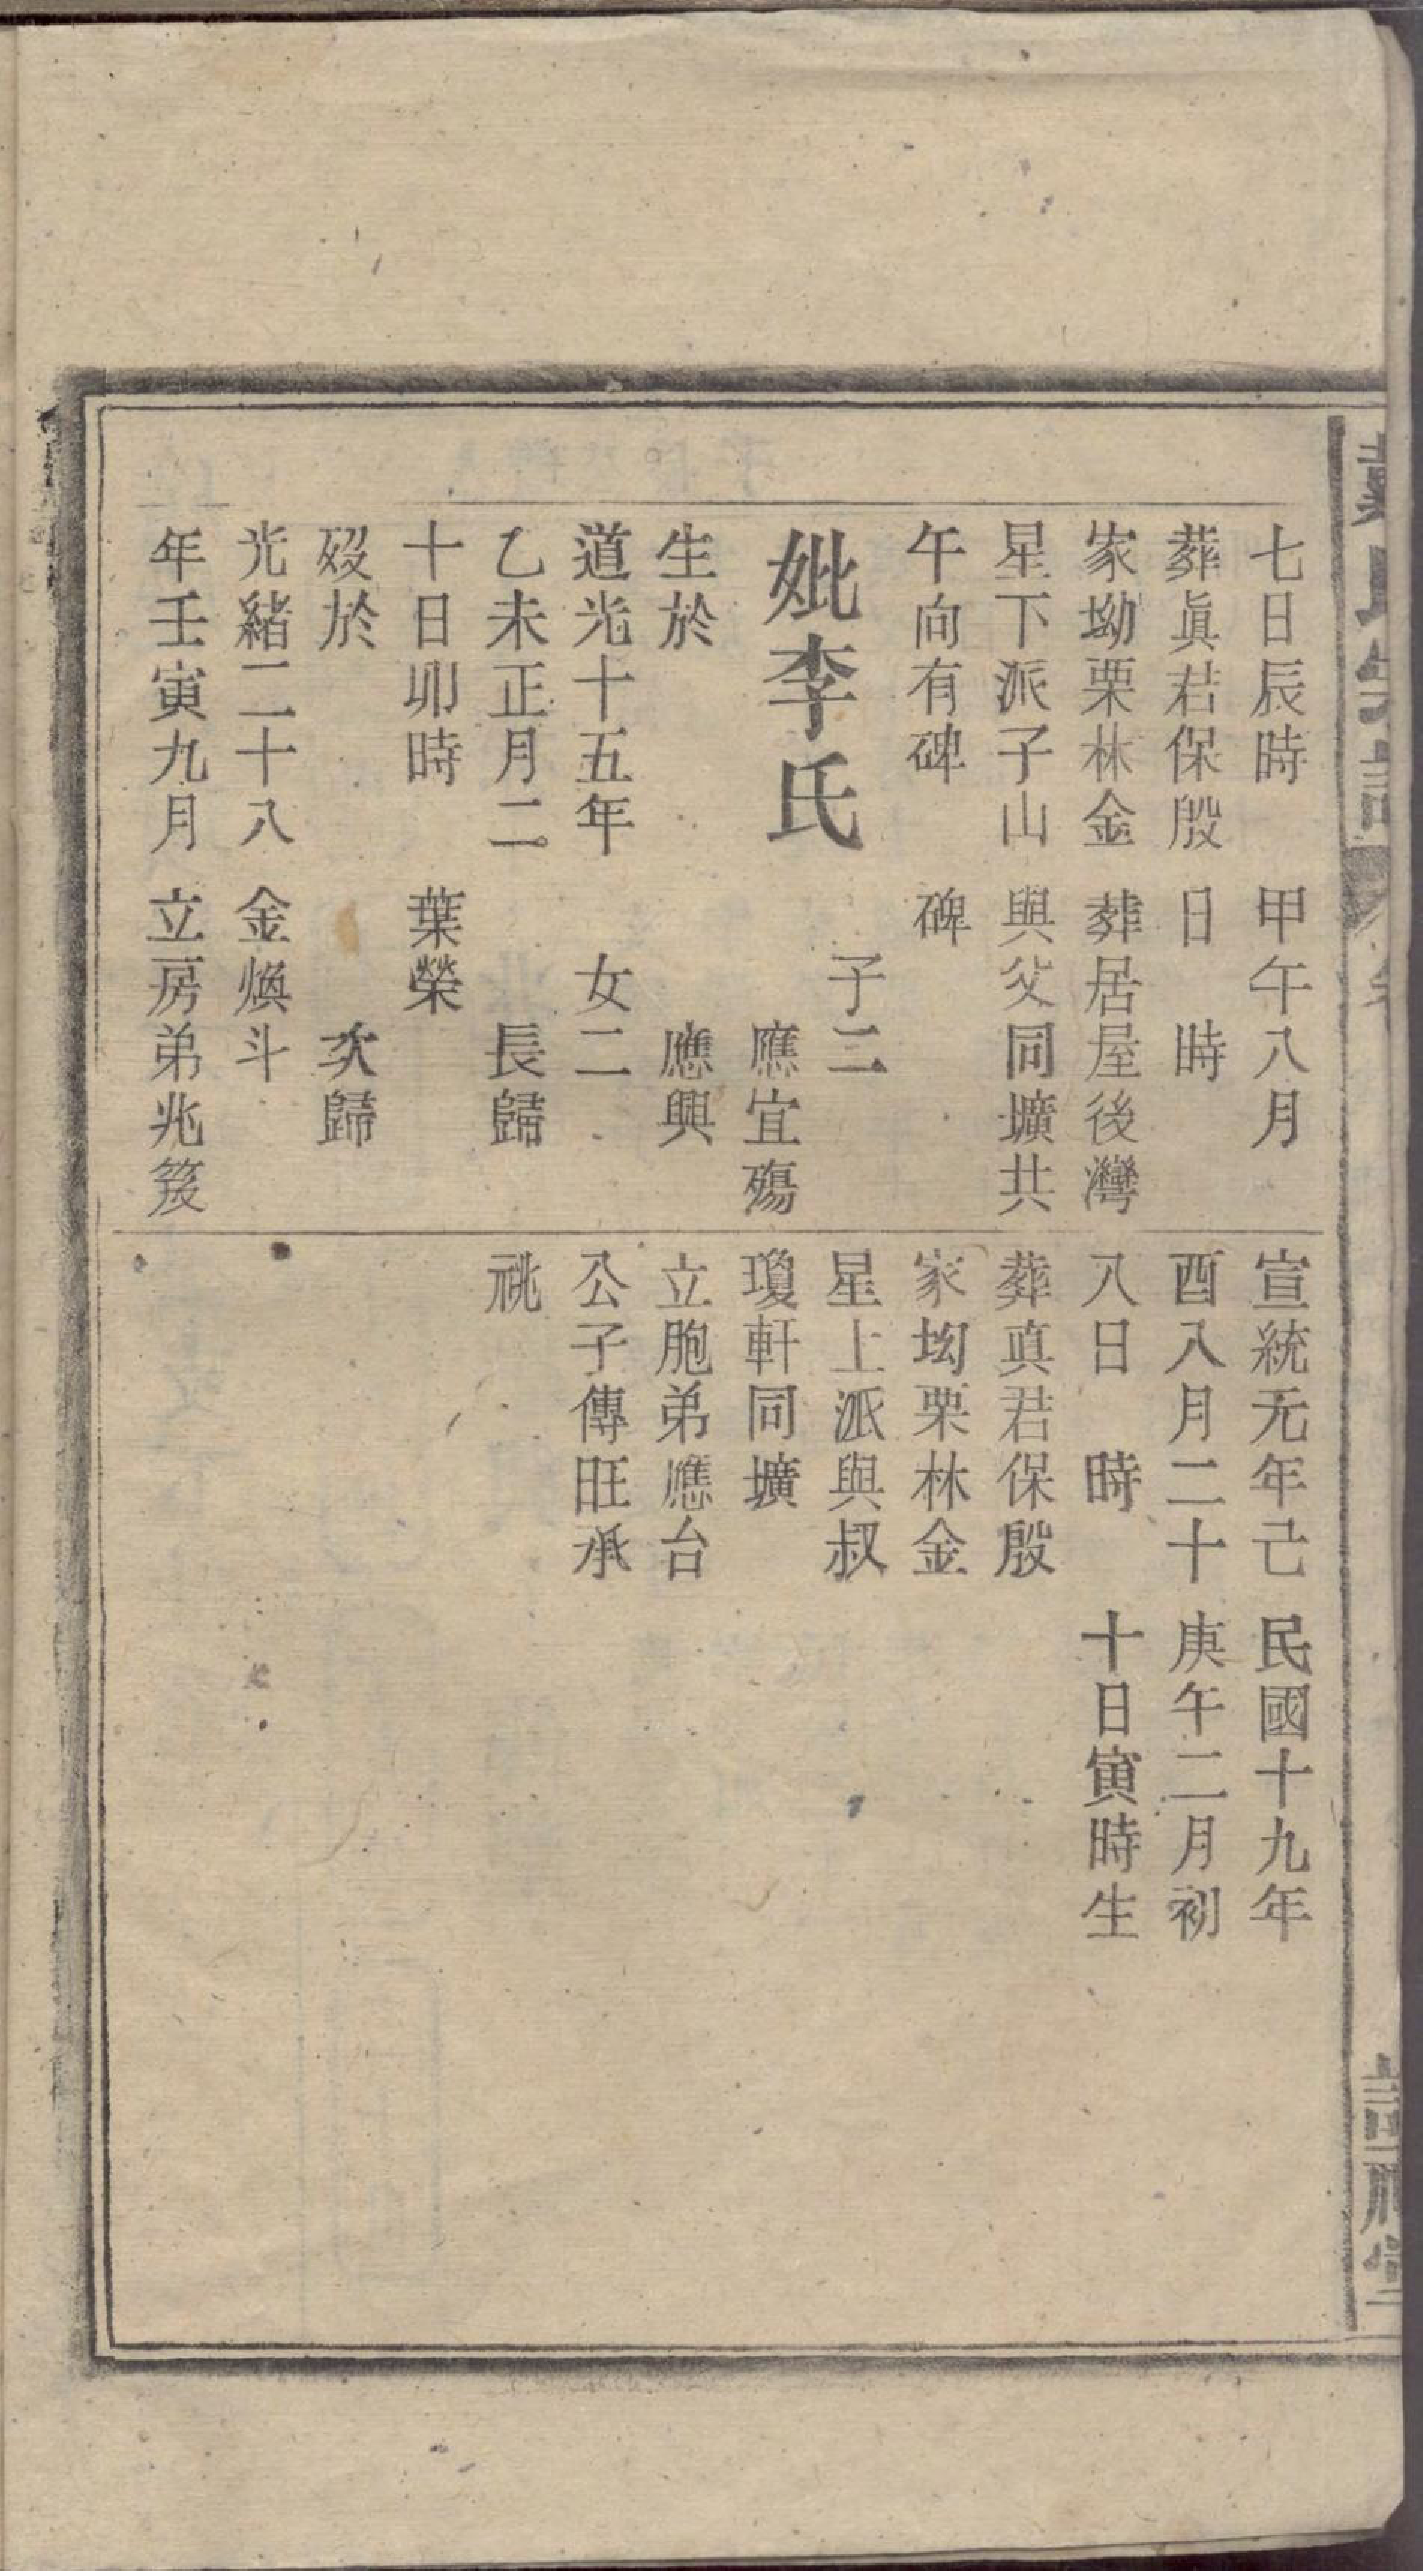 七日辰時
葬眞君保殷
家坳栗林金
星下派子山
午向有碑
妣李氏
生於
道光十五年
乙未正月二
十日卯時
歿於
光緒二十八
年壬寅九月
甲午八月
日　時
葬居屋後灣
與父同壙共
碑
子二
應宜殤
應興
女二
長歸
葉榮
次歸
金煥斗
立房弟兆筱
宣統元年己
酉八月二十
八日　時
葬真君保殷
家坳栗林金
星上派與叔
瓊軒同壙
立胞弟應台
公子傳旺承
祧
民國十九年
庚午二月初
十日寅時生